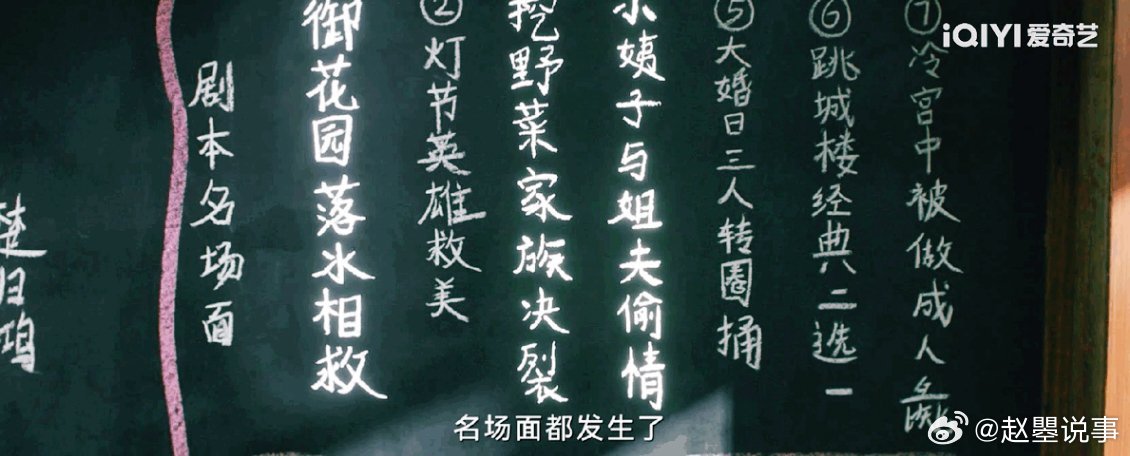 iQIYI 爱奇艺
楚归
剧本名场面
御花园落水相救
②灯节英雄救美
挖野菜家族决裂
小姨子与姐夫偷情
⑤大婚日三人转圈捅
⑥跳城楼经典二选一
⑦冷宫中被做成人
名场面都发生了
@赵曌说事